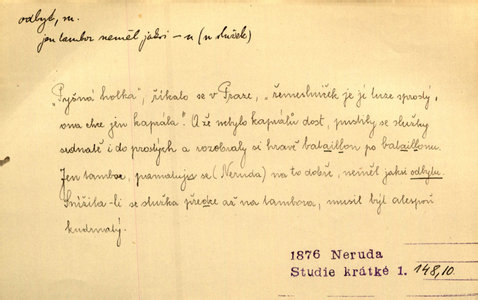 odbyt, m.
jen tambor neměl jaksi – u (u služek)
„Pyšná holka“, říkalo se v Praze, „řemeslníček je jí tuze sprostý,
ona chce jen kaprála“. A že nebylo kaprálů dost, pustily se služky
srdnatě i do prostých a rozebraly si hravě bataillon po bataillonu.
Jen tambor, pamatuju se (Neruda) na to dobře, neměl jaksi odbytu.
Snížila-li se služka přece až na tambora, musil být alespoň
kudrnatý.
1876 Neruda
Studie krátké 1. 148,10.